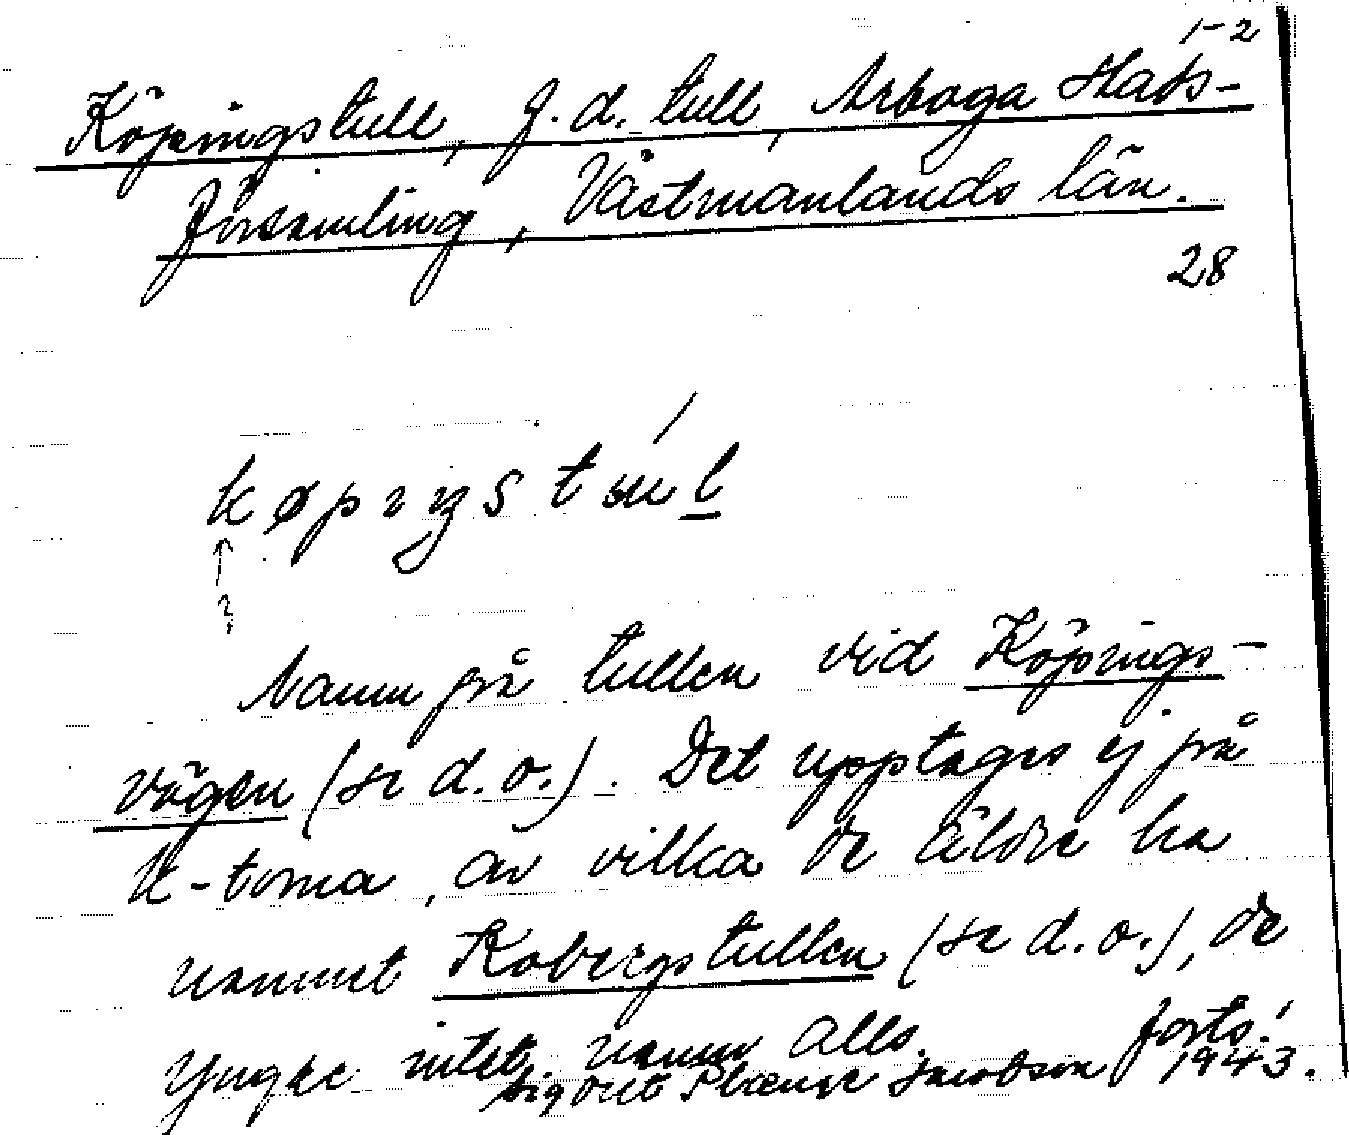 1-2
Köpingstull, f.d. tull, Arboga stads-
församling, Västmanlands län.
28
Namn på tullen vid Köpings-
vägen (se d.o.). Det upptages ej på
k-torna, av vilka de äldre ha
namnet Kobergstullen (se d.o.), de
yngre intet namn alls. forts!
Sigvret Jacobson 1943.